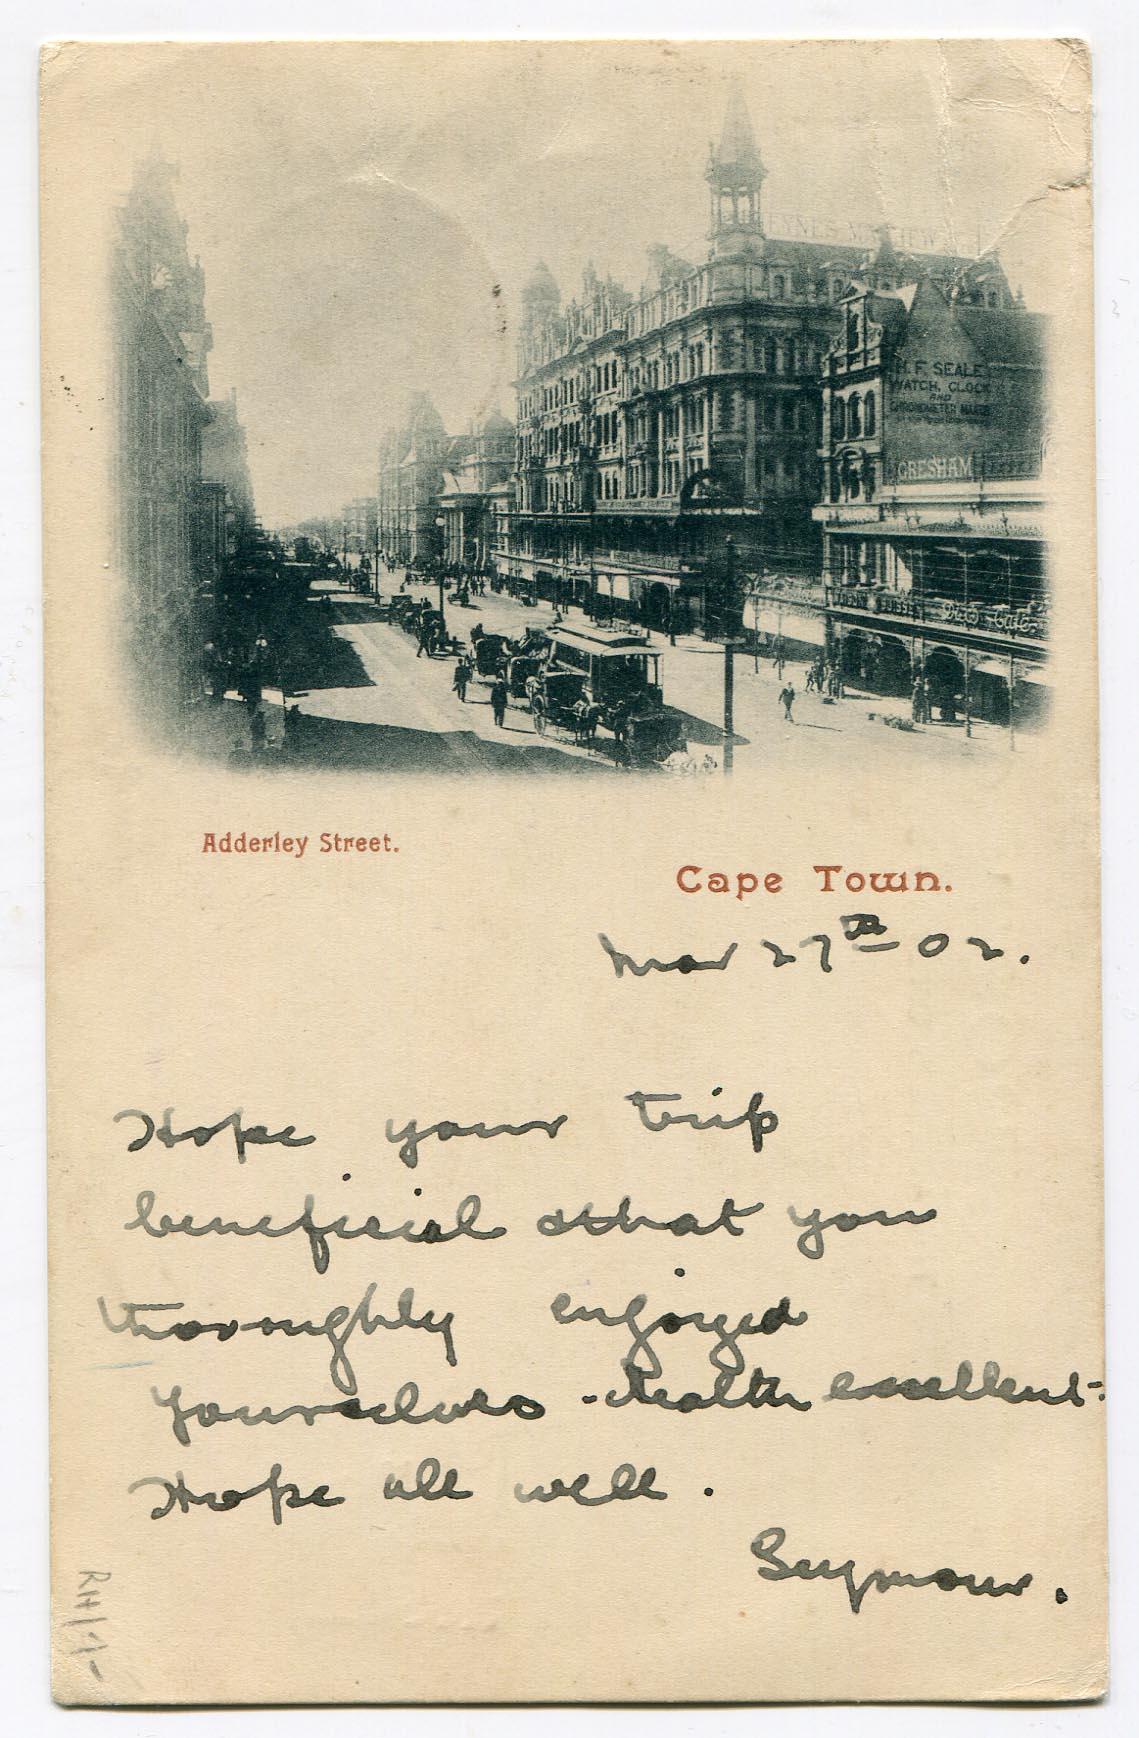 H. F. SEALE
WATCH, CLOCK
AND
CHRONOMETER MAKER
GRESHAM
Adderley Street.
Cape Town.
Mar 27th 02.
Hope your trip
beneficial & that you
thoroughly enjoyed
yourselves - health excellent -
Hope all well.
Seymour.
RH/1-